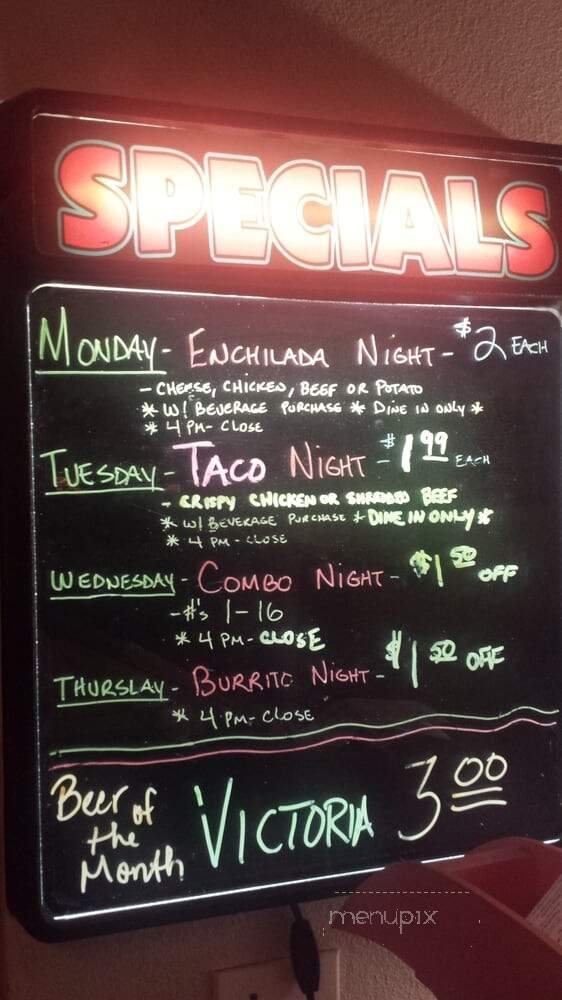 SPECIALS
MONDAY - ENCHILADA NIGHT - $2 EACH
- CHEESE, CHICKEN, BEEF OR POTATO
* W/ BEVERAGE PURCHASE * DINE IN ONLY *
* 4 PM - CLOSE
TUESDAY - TACO NIGHT - $1.99 EACH
- CRISPY CHICKEN OR SHREDDED BEEF
* W/ BEVERAGE PURCHASE * DINE IN ONLY *
* 4 PM - CLOSE
WEDNESDAY - COMBO NIGHT - $1 50 OFF
- #'s 1-16
* 4 PM - CLOSE
THURSDAY - BURRITO NIGHT - $1 50 OFF
* 4 PM - CLOSE
Beer of the Month VICTORIA 3 00
menupix